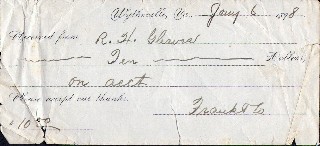 Wytheville, Va., Jany 6 1898
Received from R. H.
Ten Dollars
on acct
Please accept our thanks.
$10.00 Frank & Co